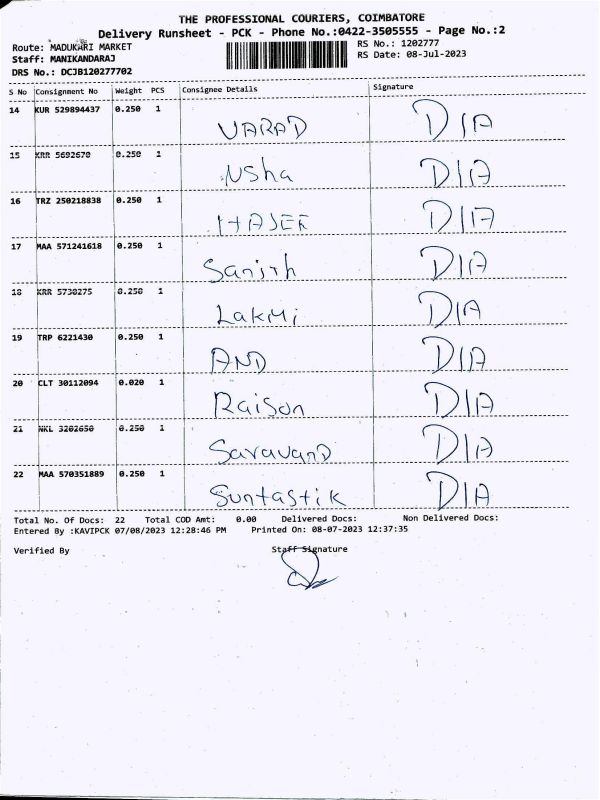 THE PROFESSIONAL COURIERS, COIMBATORE
Delivery Runsheet - PCK - Phone No.:0422-3505555 - Page No.:2
Route: MADUKARI MARKET RS No.: 1202777
Staff: MANIKANDARAJ RS Date: 08-Jul-2023
DRS No.: DCJB120277702
S No Consignment No Weight PCS Consignee Details Signature
14 KUR 529894437 0.250 1 VARAD D/A
15 KRR 5692670 0.250 1 Nsha D/A
16 TRZ 250218838 0.250 1 D/A
17 MAA 571241618 0.250 1 Sanjth D/A
18 KRR 5730275 0.250 1 Lakmi D/A
19 TRP 6221430 0.250 1 AND D/A
20 CLT 30112094 0.020 1 Raison D/A
21 NKL 3202650 0.250 1 SaravanD D/A
22 MAA 570351889 0.250 1 Suntastik D/A
Total No. Of Docs: 22 Total COD Amt: 0.00 Delivered Docs: Non Delivered Docs:
Entered By :KAVIPCK 07/08/2023 12:28:46 PM Printed On: 08-07-2023 12:37:35
Verified By Staff Signature